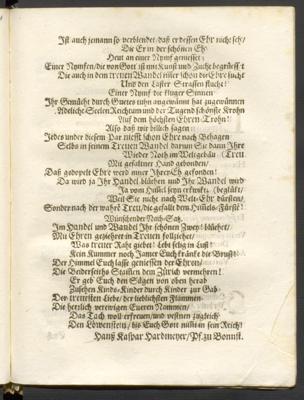 Ist auch jemand so verblendet, daß er dessen Ehr nicht seh/
Die Er in der schönen Eh/
Heut an einer Nymf geniesset:
Einer Nymfen/ die von Gott ist mit Kunst und Zucht begrüesst
Die auch in dem treuen Wandel nur schon die Ehre sucht
Und den Laster Strassen flucht:
Einer Nymf die kluger Sinnen
Ihr Gemüht durch Gutes tuhn angewännt hat zugewinnen
Adeliche Seelen Reichtum und der Tugend schönste Krohn
Auf dem höchsten Ehren-Trohn:
Also daß wir billich sagen:
Jedes under diesem Par niesst schon Ehre nach Behagen
Selbs in seinem Treuen Wandel darum Sie dann Ihre
Wieder Noth im Weltgebäu (Treu
Mit gesamter Hand gebonden/
Daß gedopelt Ehr werd unter Ihrer Eh gefonden:
Da wird ja Ihr Handel blüehen und Ihr Wandel wird
Ja vom Himmel seyn erkwikt; (beglükt/
Weil Sie nicht nach Welt-Ehr dürsten/
Sonder nach der wahrē Treu/ die gefallt dem Himels-Fürste!
Wünschender Nach-Satz.
Im Handel und Wandel Ihr schönen Zwey! blüehet/
Mit Ehren gezieret in Treuen fortziehet/
Was treuer Raht giebet! Lebt selig in Lust!
Kein Kummer noch Jamer Euch kränke die Brust!
Der Himmel Euch lasse geniessen der Ehren/
Die Beiderseiths Stammen dem Zürich vermehren!
Er geb Euch den Sägen von oben herab
Zusehen Kinds-Kinder durch Kinder zur Gab
Der treuisten Liebe/ der lieblichsten Flammen
Die herzlich vereinigen Eueren Nammen/
Das Tach woll erfreuen/ und vestnen zugleich
Den Löwenstein/ bis Euch Gott nimmt in sein Reich!
Hanß Kaspar Hardmeyer/ Pf. zu Bonnst.